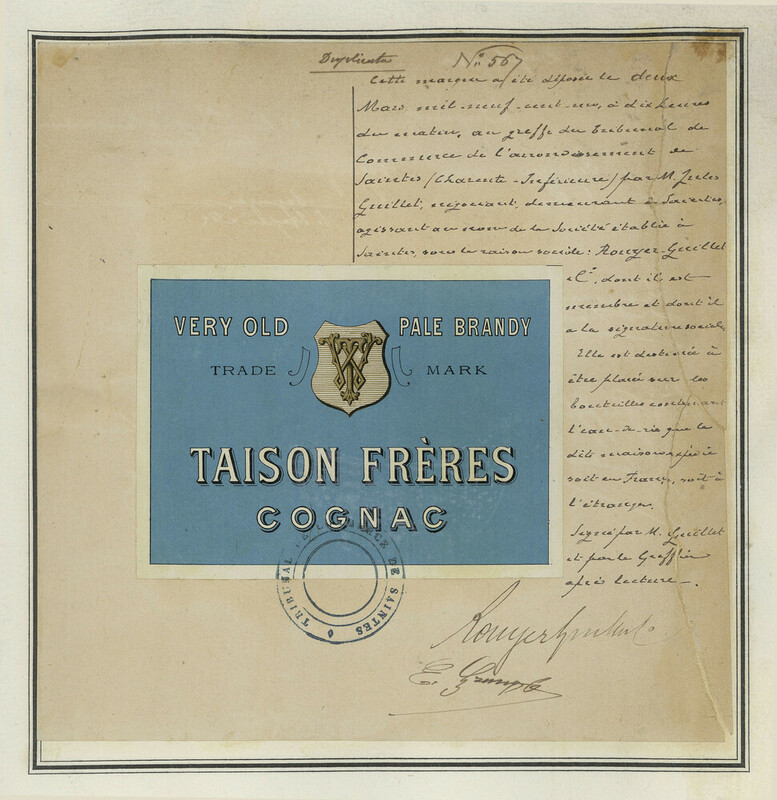 Duplicata
N° 567
Cette marque a été déposée le deux
Mars mil-neuf-cent-un, à dix heures
du matin, au greffe du Tribunal de
Commerce de l'arrondissement de
Saintes (Charente-Inférieure) par M. Jules
Guillet, négociant, demeurant à Saintes,
agissant au nom de la Société établie à
Saintes, sous la raison sociale : Rouyer-Guillet
et Cie, dont il est
membre et dont il
a la signature sociale.
Elle est destinée à
être placée sur les
bouteilles contenant
l'eau-de-vie que la
dite maison expédie
soit en France, soit à
l'étranger.
Signé par M. Guillet
et par le Greffier
après lecture.
VERY OLD PALE BRANDY
TRADE MARK
TAISON FRÈRES
COGNAC
TRIBUNAL DE SAINTES
Rouyer Guillet & Co